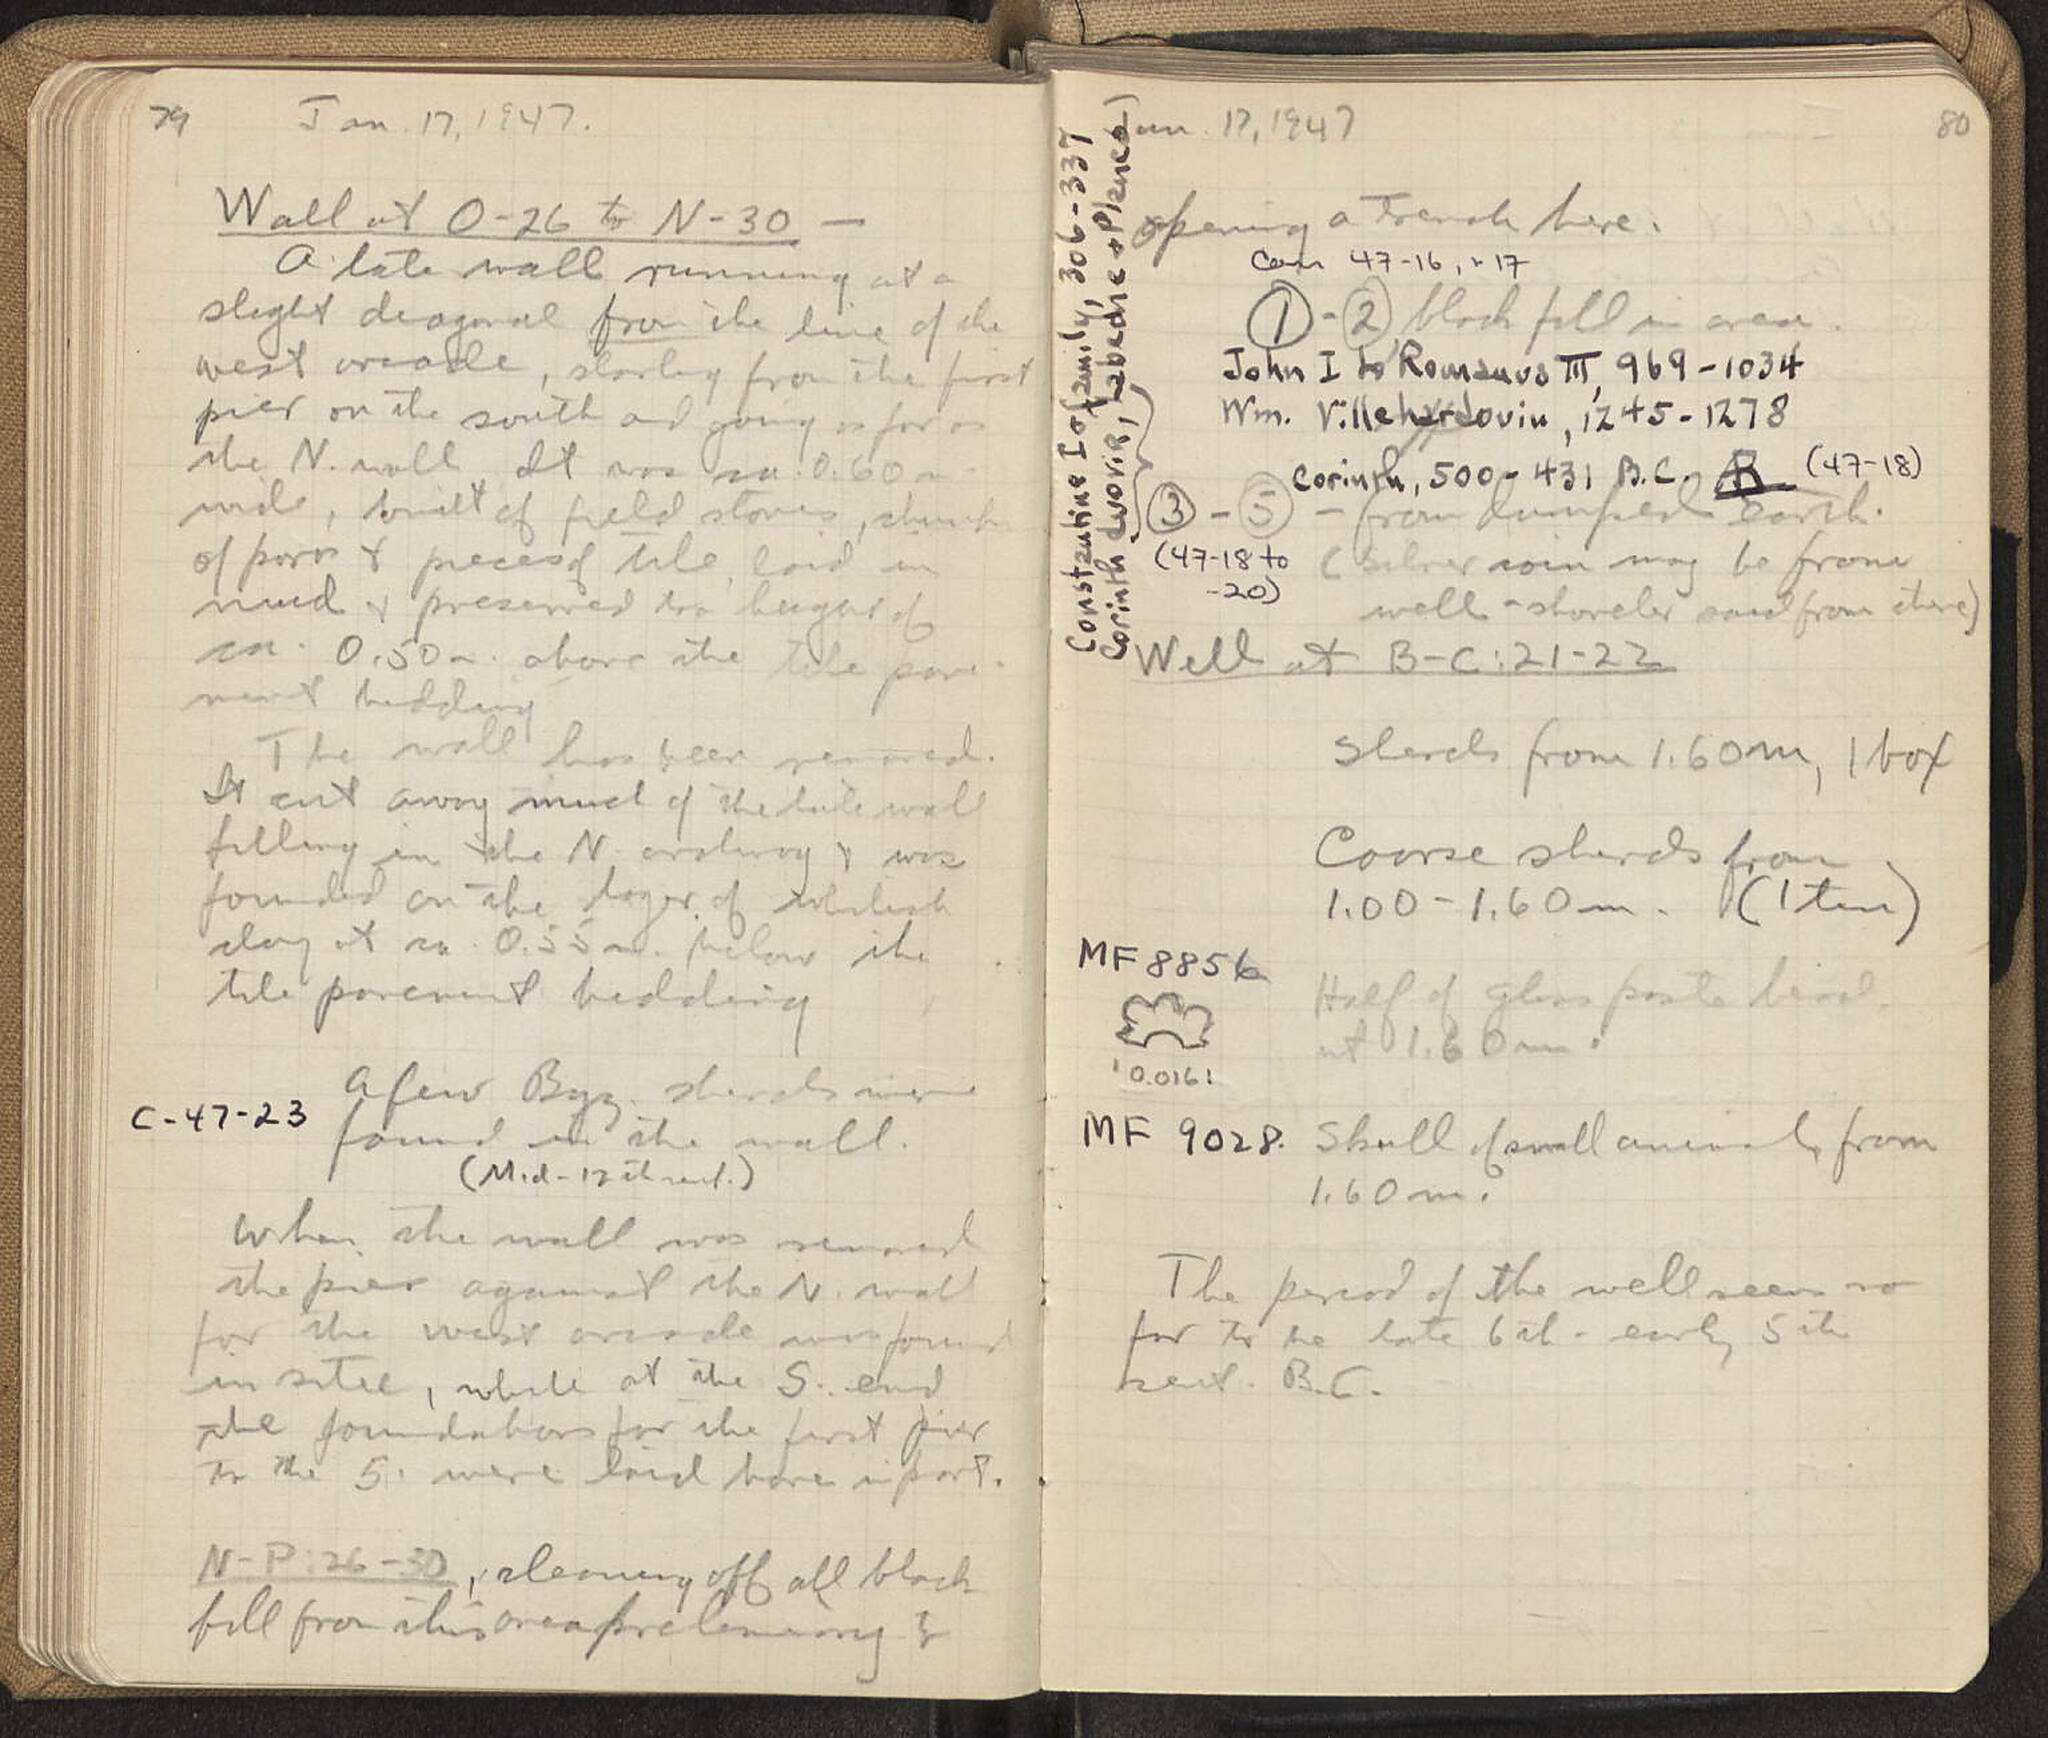 79 Jan. 17, 1947.
Wall at O-26 to N-30 —
A late wall running at a
slight diagonal from the line of the
west arcade, starting from the first
pier on the south and going as far as
the N. wall. It was ca. 0.60 m
wide, built of field stones, chunks
of poros & pieces of tile, laid in
mud & preserved to a height of
ca. 0.50 m. above the tile pave-
ment bedding
The wall has been removed.
It cut away much of the late wall
filling in the N. archway & was
founded on the layer of whitish
clay at ca. 0.55 m. below the
tile pavement bedding
A few Byz. sherds were
C-47-23 found in the wall.
(Mid-12th cent.)
When the wall was removed
the pier against the N. wall
for the west arcade was found
in situ, while at the S. end
the foundations for the first pier
to the S. were laid bare in part.
N-P:26-30, cleaning off all black
fill from this area preliminary to
Jan. 17, 1947 80
opening a trench here.
Coin 47-16, -17
① - ② black fill in area.
John I to Romanus III, 969-1034
Wm. Villehardouin, 1245-1278
Corinth, 500-431 B.C. AR (47-18)
③ - ⑤ - from dumped earth.
(47-18 to (silver coin may be from
-20) well - shoveler said from there)
Constantine I & family, 306-337
Corinth duovir, Labedne &
Well at B-C:21-22
Sherds from 1.60m, 1 box
Coarse sherds from
1.00-1.60m. (1 tin)
MF 8856 Half of glass paste bead.
at 1.60m.
0.0161
MF 9028. Skull of small animal, from
1.60m.
The period of the well seems so
far to be late 6th - early 5th
cent. B.C.